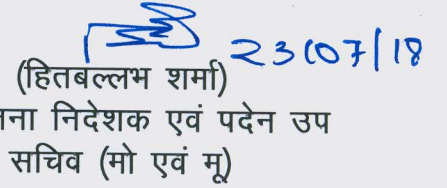 23/07/18
(हितबल्लभ शर्मा)
ना निदेशक एवं पदेन उप
सचिव (मो एवं मू)